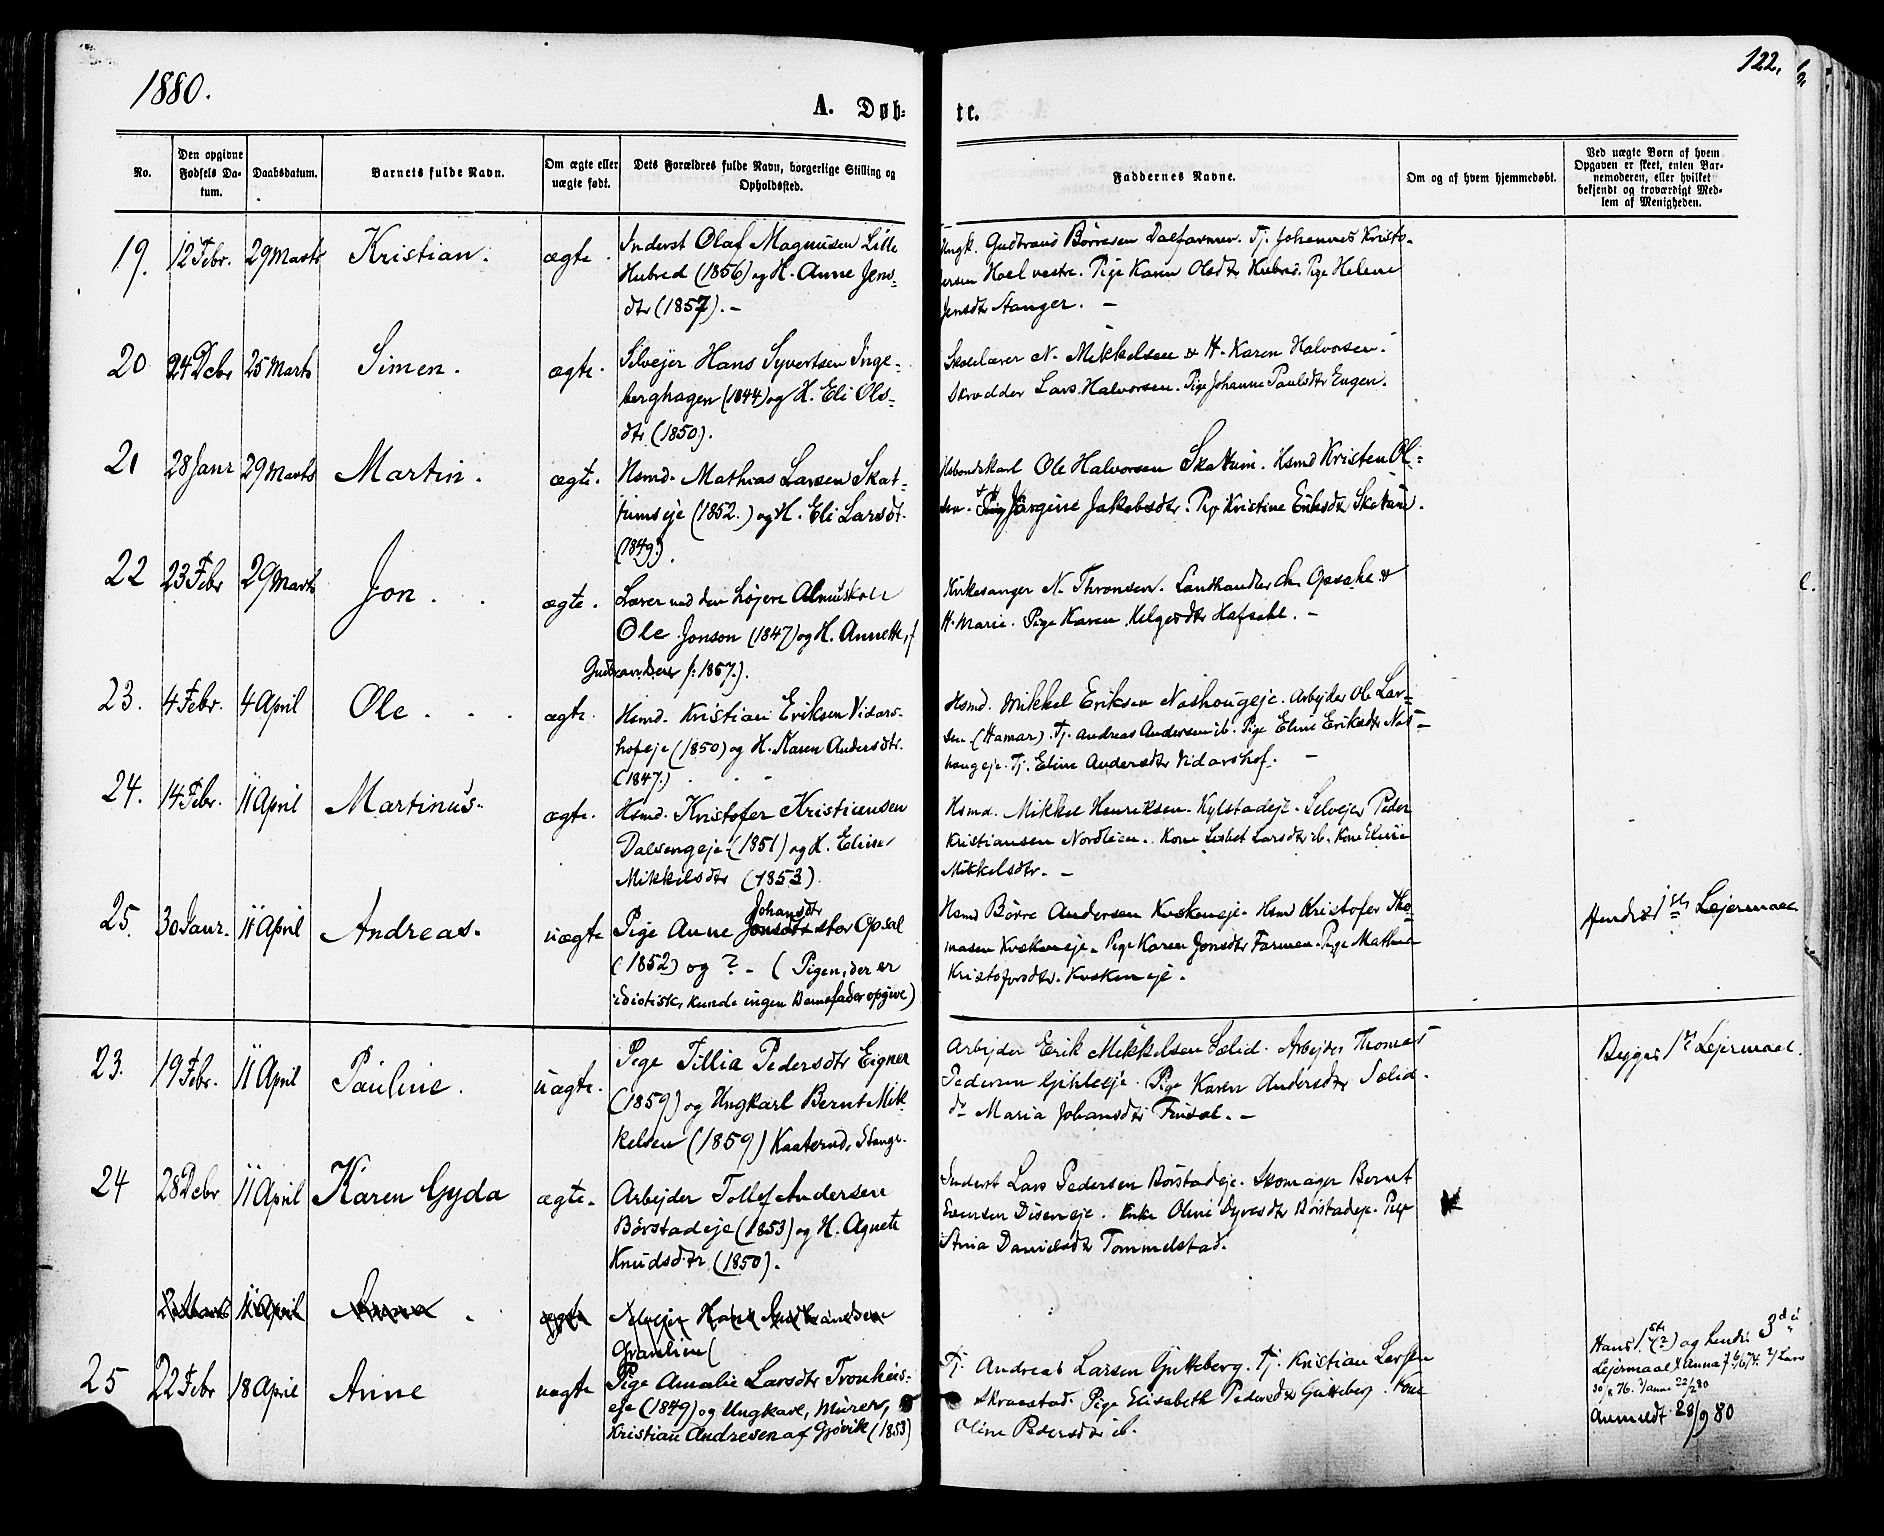 1880.
122.
A. Døb-
te.
No.
Den opgivne Fødsels Da-tum.
Daabsdatum.
Barnets fulde Navn.
Om ægte eller uægte født.
Dets Forældres fulde Navn, borgerlige Stilling og Opholdssted.
Faddernes Navne.
Om og af hvem hjemmedøbt.
Ved uægte Børn af hvem Opgaven er skeet, enten Bar-nemoderen, eller hvilket bekjendt og troværdigt Med-lem af Menigheden.
19. 12 Febr. 29 Marts Kristian. ægte.
Inderst Olaf Magnusen Lille
Hubred (1856) og H. Anne Jens-
dtr (1857). -
Ungk. Gudbrand Børresen Dalfarmen. Tj. Johannes Kristo-
fersen Hoel vestre. Pige Karen Olsdtr Hubred. Pige Helene
Jensdtr Stanger. -
20 24 Debr 25 Marts Simen. ægte.
Selvejer Hans Syvertsen Inge-
berghagen (1844) og H. Eli Ols-
dtr (1850).
Skolelærer N. Mikkelsen & H. Karen Halvorsen.
Skrædder Lars Halvorsen. Pige Johanne Paulsdtr Engen.
21 28 Janr 29 Marts Martin. ægte.
Hsmd. Mathias Larsen Skat-
tumseje (1852.) og H. Eli Larsdt.
(1849.).
Husbondskarl Ole Halvorsen Skattum. Hsmd Kristen Ol-
sen & H. Jørgine Jakobsdtr. Pige Kristine Eriksdtr Skattum.
22 23 Febr 29 Marts Jon. ægte.
Lærer ved den højere Almueskole
Ole Jonson (1847) og H. Annette, f
Gudbrandsen f: 1857.).
Kirkesanger N. Thronsen. Landhandler Chr. Opsahl &
H. Marie. Pige Karen Helgesdtr Hafsahl. -
23. 4 Febr. 4 April Ole. ægte.
Hsmd. Kristian Eriksen Vidars-
hofeje (1850) og H. Karen Andersdtr.
(1847.)
Hsmd. Mikkel Eriksen Nashougeje. Arbejder Ole Lar-
sen (Hamar). Tj. Andreas Andersen ib. Pige Eline Eriksdtr Nas-
hougeje. Tj. Eline Andersdtr Vidarshof. -
24. 14 Febr. 11 April Martinus. ægte.
Hsmd. Kristofer Kristiansen
Dalsengeje (1851) og H. Eline
Mikkelsdtr (1853).
Hsmd. Mikkel Henriksen Kylstadeje. Selvejer Peder
Kristiansen Nordlien. Kone Lisbet Larsdtr ib. Kone Eline
Mikkelsdtr. -
25. 30 Janr. 11 April Andreas. uægte
Johansdtr
Pige Anne Jonsdtr stor Opsal
(1852) og ? - (Pigen, der er
idiotisk, kunde ingen Barnefader opgive)
Hsmd Børre Andersen Kuskeneje. Hsmd Kristofer Tho-
masen Kuskeneje. Pige Karen Jonsdtr Farmen. Pige Mathea
Kristofersdtr. Kuskeneje.
Hendes 1ste Lejermaal
23. 19 Febr. 11 April Pauline. uægte.
Pige Tillia Pedersdtr Eigner
(1859) og Ungkarl Bernt Mik-
kelsen (1859) Kaaterud, Stange.
Arbejder Erik Mikkelsen Sælid. Arbejder Thomas
Pedersen Gihleeje. Pige Karen Andersdtr Sælid.
do Maria Johansdtr Frisøl. -
Begges 1ste Lejermaal.
24 28 Debr 11 April Karen Gyda ægte.
Arbejder Tollef Andersen
Børstadeje (1853) og H. Agnete
Knudsdtr (1850).
Inderst Lars Pedersen Børstadeje. Skomager Bernt
Evensen Diseneje. Enke Oline Syvesdtr Børstadeje. Pige
Stina Danielsdtr Tommelstad.
11 April Anna. ægte
Selvejer Hans Gudbrandsen
Granlien (
25 22 Febr 18 April Anne uægte
Pige Amalie Larsdtr Tronhus-
eje (1849) og Ungkarl, Murer,
Kristian Andresen af Gjøvik (1853)
Tj. Andreas Larsen Gutteberg. Tj. Kristian Larsen
Skraastad. Pige Elisabeth Pedersdtr Gutteberg. Kone
Oline Pedersdtr ib.
Hans 1ste (?) og hendes 3die
Lejermaal Anna 2/ Lars
30/8 76. 3/ Anne 22/2 80
Anmeldt 28/9 80